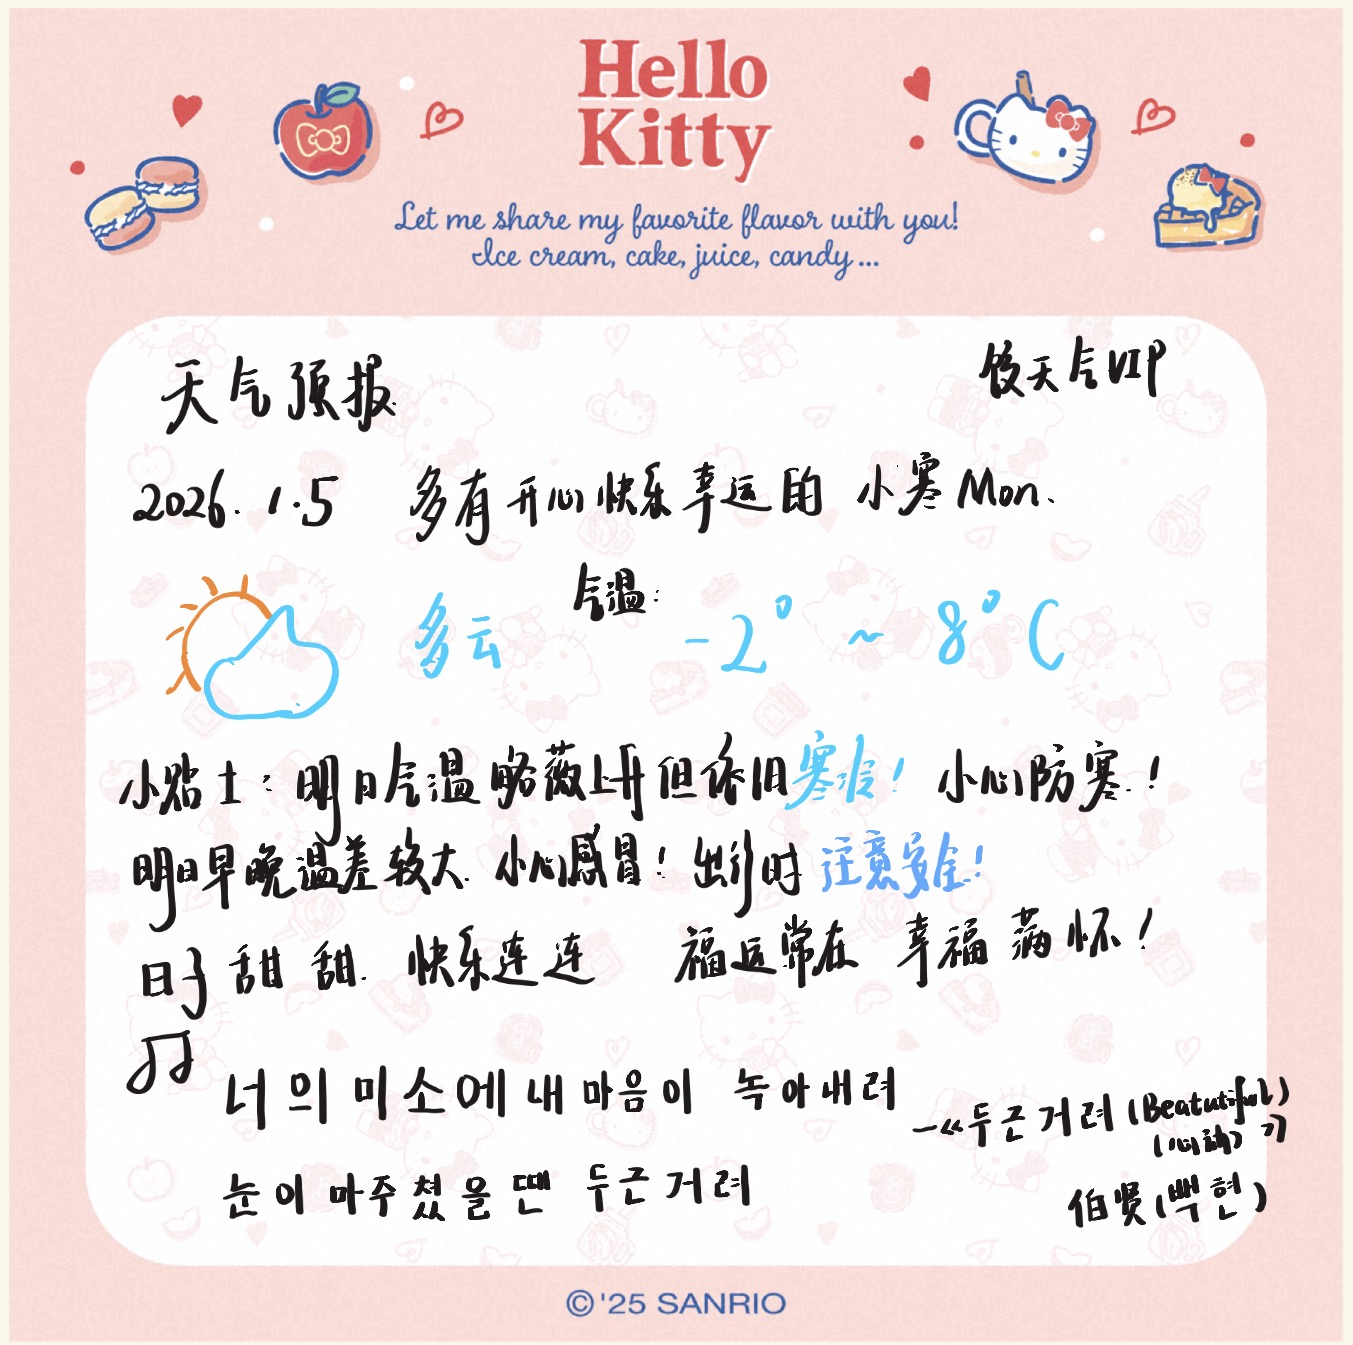 Hello
Kitty
Let me share my favorite flavor with you!
Ice cream, cake, juice, candy...
天气预报
天气VIP
2026.1.5 多有开心快乐幸运的 小寒 Mon.
多云 气温: -2° ~ 8°C
小贴士:明日气温略微上升但依旧寒冷!小心防寒!
明日早晚温差较大 小心感冒!出行时注意安全!
日子甜甜 快乐连连 福运常在 幸福满怀!
너의 미소에 내 마음이 녹아내려
—《두근거려 (Beatutiful) (心跳)》
눈이 마주쳤을 땐 두근거려
伯贤(백현)
©'25 SANRIO